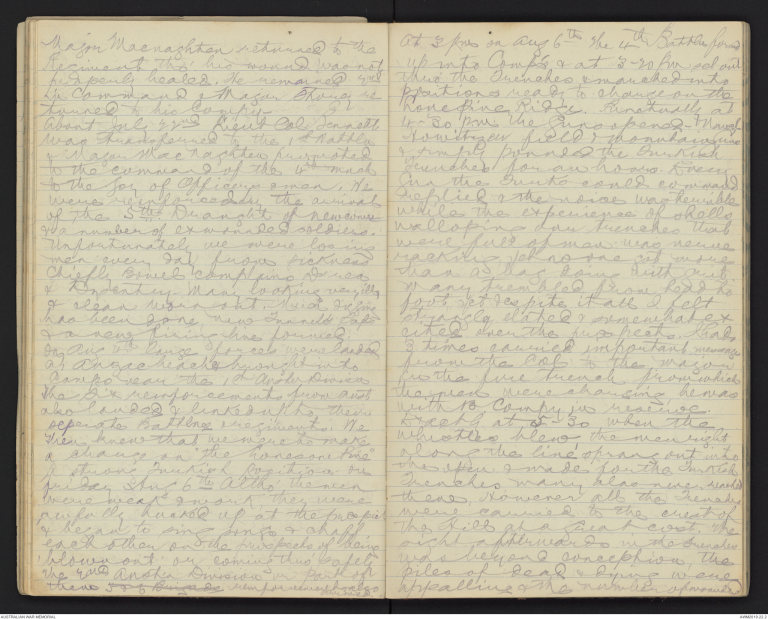 Major Macnaghten returned to the
Regiment tho' his wound was not
properly healed. He remained 2nd
in Command & Major
turned to his Compy.
About July 22nd Lieut Col Bennett
was transferred to the 1st Battln
& Major MacNaghten promoted
to the command of the 4th much
to the joy of Officers & men. We
were reinforced by the arrival
of the 5th Draught of newcomers
& a number of exwounded soldiers.
Unfortunately we were losing
men every day from sickness
Chiefly Bowel Complains
& Dysentry. Many looking very ill
& clean worn out. Much
has been done, new Tunnels Saps
& a new firing line formed
On Aug 5th large forces were landed
at Anzac beach & brought into
Camps near the 1st Austr Division
The Six reinforcements from Aust
also landed & linked up to their
seperate Battlns & regiments. We
then knew that we were to make
a charge on "the Lonesome Pine"
a strong Turkish position on
Friday Aug 6th Altho' the men
were weak & worn, they were
awfully bucked up at the prospect
& began to sing songs & chaff
each other on the prospects of being
blown out or coming thro' safely
The 2nd Austrn Division or part of
them reinforcements
At 3 pm on Aug 6th the 4th Battln formed
up into Comps & at 3-20 pm set out
thro' the Trenches & marched into
positions ready to charge on the
Lone Pine Ridge. Punctually at
4-30 pm the Guns opened. Naval
Howitzer field & mountain guns
& simply pounded the Turkish
trenches for an hour. Every
gun the Turks could command
replied & the noise was horrible
while the experience of shells
walloping our trenches that
were full of men was nerve
racking yet no one cut more
than a
Many trembled from head to
foot yet despite it all I felt
strangely elated & somewhat ex
cited over the prospects. I had
3 times carried important messages
from the Col to the major
in the fire trench from which
the men were charging he was
with B Compy in reserve.
Exactly at 5-30 when the
whistles blew the men right
along the line sprang out into
the open & made for the Turkish
Trenches many alas never reached
them. However all the Trenches
were carried to the crest of
the Hill at a great cost, the
sight afterwards in the trenches
was beyond conception, the
piles of dead & dying were
appalling & the number of wounded
AUSTRALIAN WAR MEMORIAL